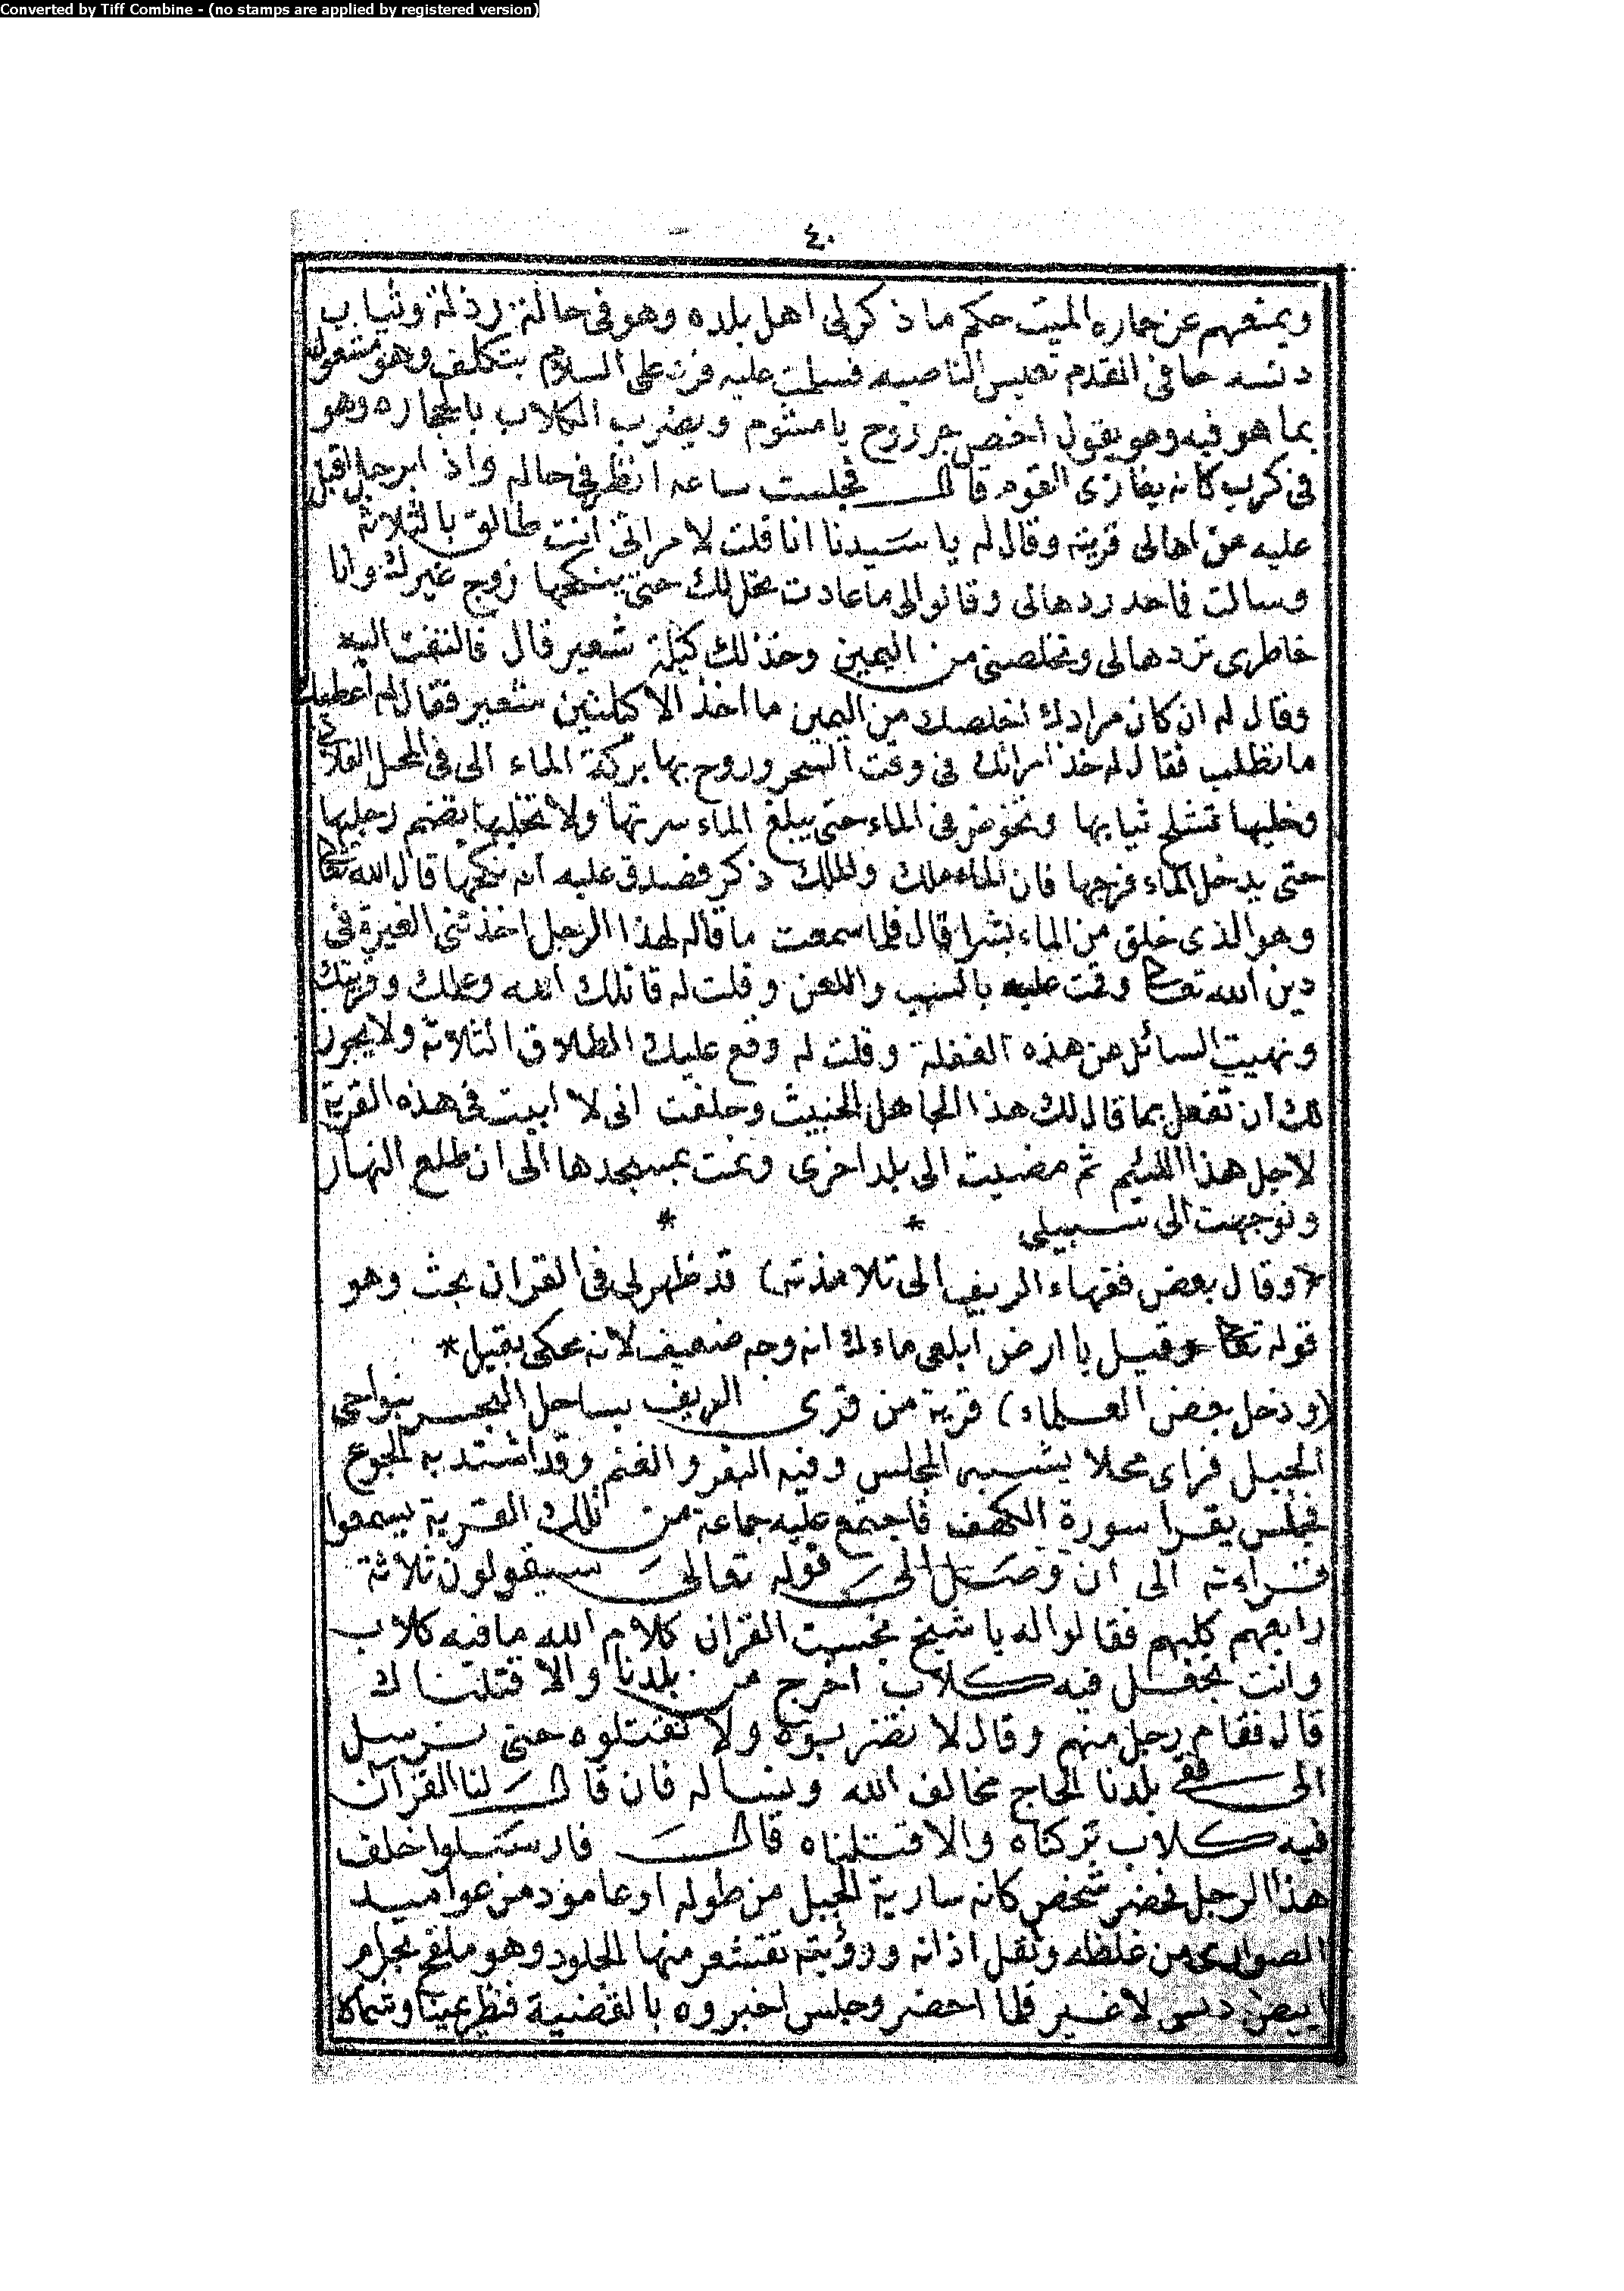 Converted by Tiff Combine - (no stamps are applied by registered version)
٤٠
ويمنعهم عن حماره الميت حكم ما ذكر لى اهل بلده وهو فى حالة رذلة وثياب
دنسه حافى القدم تعيس الناصيه فسلمت عليه فرد على السلام بتكلف وهو مشغول
بما هو فيه وهو يقول اخص جر روح يا مشوم ويضرب الكلاب بالحجاره وهو
فى كرب كانه يغازى القوم قال فجلست ساعه انظر فى حاله واذا برجل اقبل
عليه من اهالى قريته وقال له يا سيدنا انا قلت لامراتى انت طالق بالثلاثة
وسالت فاحد ردها لى وقالوا لى ما عادت تحل لك حتى ينكحها زوج غيرك وانا
خاطرى تردها لى وتخلصنى من اليمين وخذ لك كيلة شعير قال فالتفت اليه
وقال له ان كان مرادك اخلصك من اليمين ما اخذ الا كيلتين شعير فقال له اعطيك
ما تطلب فقال له خذ امراتك فى وقت السحر وروح بها بركة الماء الى فى المحل الفلانى
وخليها تشلح ثيابها وتخوض فى الماء حتى يبلغ الماء سرتها ولا تخليها تضم رجليها
حتى يدخل الماء فرجها فان الماء ملك والملك ذكر فصدق عليه انه نكحها قال الله تعالى
وهو الذى خلق من الماء بشرا قال فلما سمعت ما قاله لهذا الرجل اخذتنى الغيرة فى
دين الله تعالى وقمت عليه بالسب واللعن وقلت له قاتلك الله وعملك وقريتك
ونهيت السائل عن هذه الفعلة وقلت له وقع عليك الطلاق الثلاثة ولا يجوز
لك ان تفعل بما قال لك هذا الجاهل الخبيث وحلفت انى لا ابيت فى هذه القرية
لاجل هذا اللئيم ثم مضيت الى بلد اخرى ونمت بمسجدها الى ان طلع النهار
وتوجهت الى سبيلى * *
(وقال بعض فقهاء الريف الى تلامذته) قد ظهر لى فى القران بحث وهو
قوله تعالى وقيل يا ارض ابلعى ماءك انه وجه ضعيف لانه محكى بقيل *
(ودخل بعض العلماء) قرية من قرى الريف بساحل البحر بنواحى
الجبل فراى محلا يشبه المجلس وفيه البقر والغنم وقد اشتد به الجوع
فجلس يقرا سورة الكهف فاجتمع عليه جماعة من تلك القرية يسمعوا
قراءته الى ان وصل الى قوله تعالى سيقولون ثلاثة
رابعهم كلبهم فقالوا له يا شيخ نجست القران كلام الله ما فيه كلاب
وانت تجعل فيه كلاب اخرج من بلدنا والا قتلناك
قال فقام رجل منهم وقال لا تضربوه ولا تقتلوه حتى نرسل
الى فقى بلدنا الحاج مخالف الله ونساله فان قال لنا القران
فيه كلاب تركناه والا قتلناه قال فارسلوا خلف
هذا الرجل فحضر شخص كانه سارية الجبل من طوله او عامود من عواميد
الصوارى من غلظه وثقل اذانه ورؤيته تقشعر منها الجلود وهو ملفح بحرام
ابيض دنس لا غير فلما احضر وجلس اخبروه بالقضية فنظر يمينا وشمالا